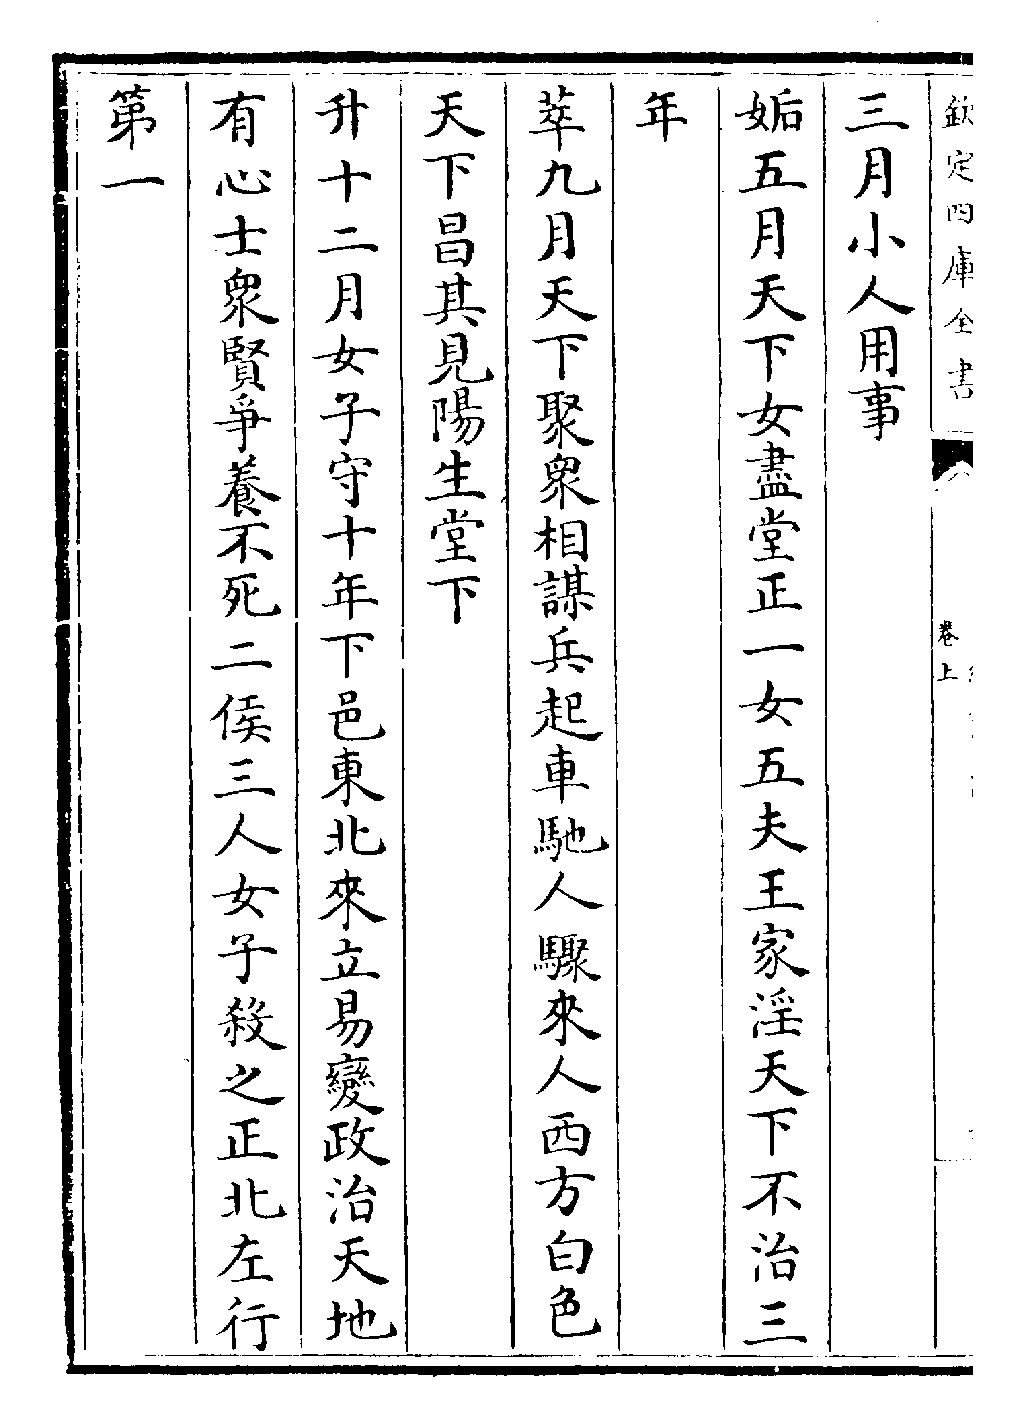 欽定四庫全書
卷上
三月小人用事
姤五月天下女盡堂正一女五夫王家淫天下不治三
年
萃九月天下聚衆相謀兵起車馳人驟來人西方白色
天下昌其見陽生堂下
升十二月女子守十年下邑東北來立易變政治天地
有心士衆賢爭養不死二侯三人女子殺之正北左行
第一